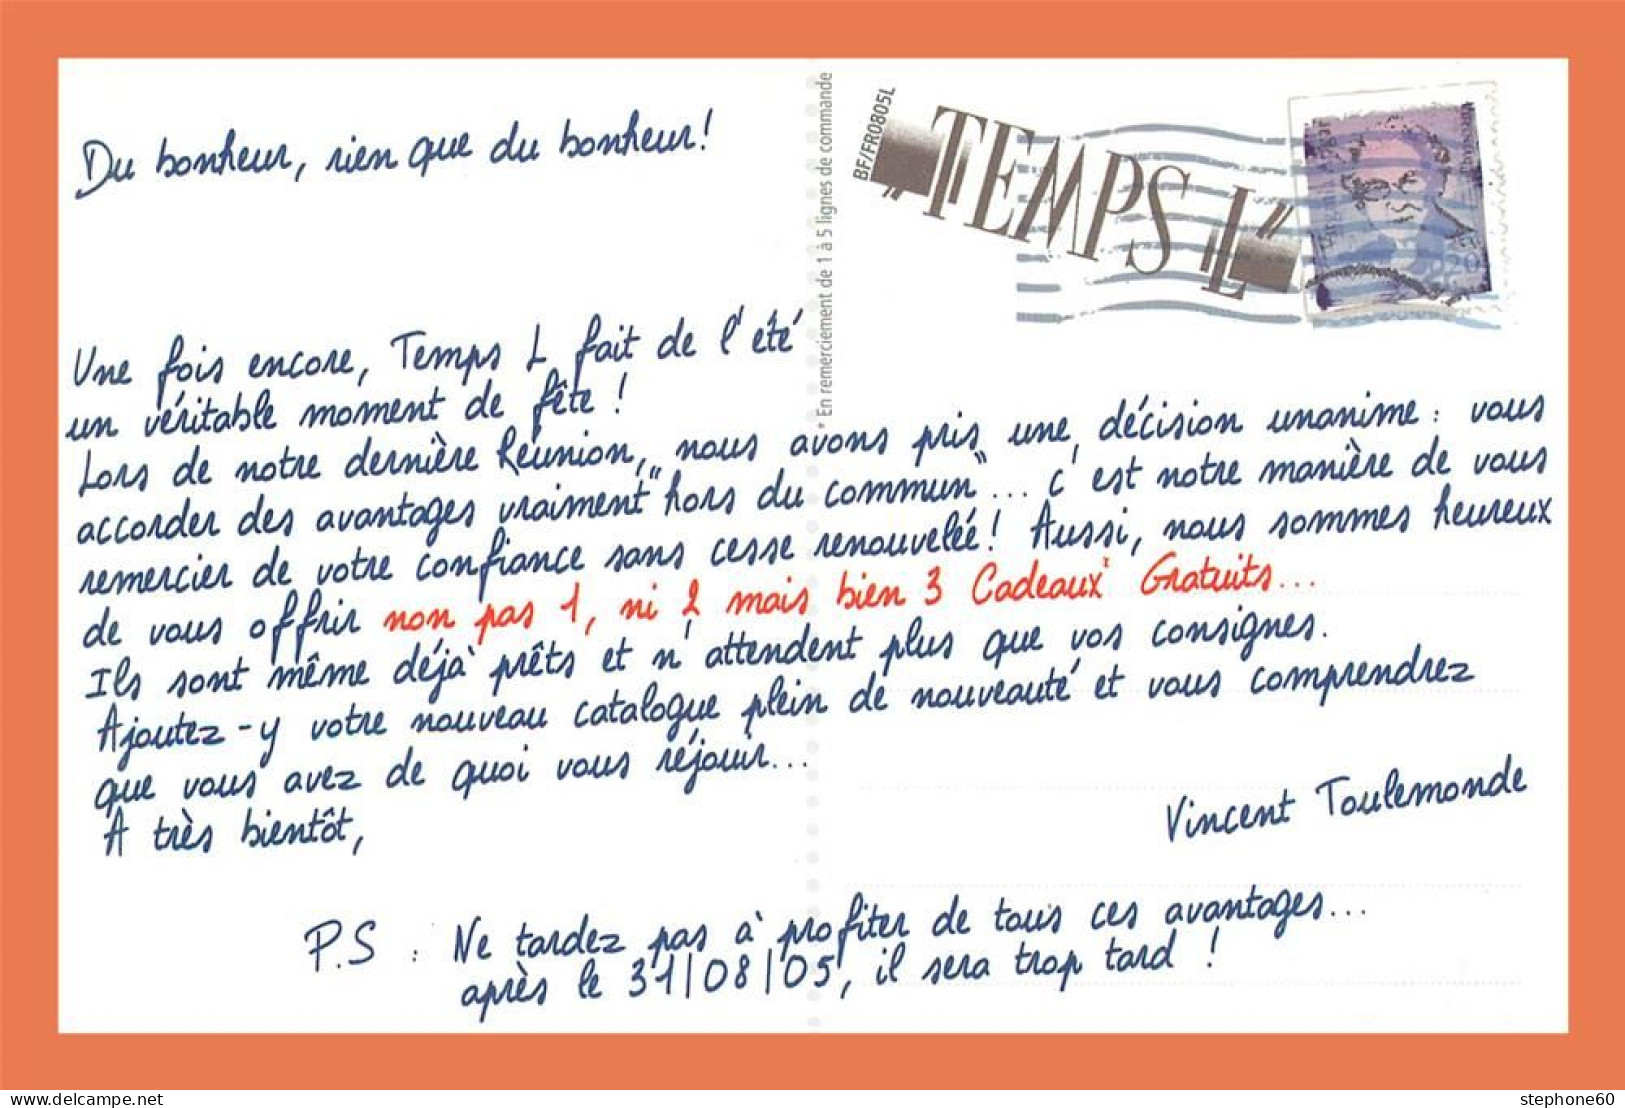 Du bonheur, rien que du bonheur!
BF/FR0805L
"TEMPS L"
* En remerciement de 1 à 5 lignes de commande
Une fois encore, Temps L fait de l'été
un véritable moment de fête !
Lors de notre dernière Réunion, nous avons pris une décision unanime : vous
accorder des avantages vraiment "hors du commun"... c'est notre manière de vous
remercier de votre confiance sans cesse renouvelée! Aussi, nous sommes heureux
de vous offrir non pas 1, ni 2 mais bien 3 Cadeaux* Gratuits...
Ils sont même déjà prêts et n'attendent plus que vos consignes.
Ajoutez-y votre nouveau catalogue plein de nouveauté et vous comprendrez
que vous avez de quoi vous réjouir...
A très bientôt,
Vincent Toulemonde
P.S : Ne tardez pas à profiter de tous ces avantages...
après le 31/08/05, il sera trop tard !
delcampe.net
stephone60